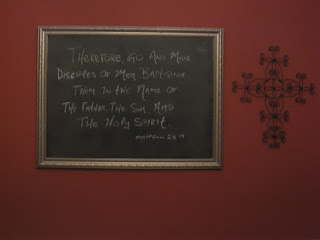 Therefore, go and make
Disciples of men Baptising
Them in the name of
The Father, The Son, and
The Holy Spirit.
Matthew 28:19